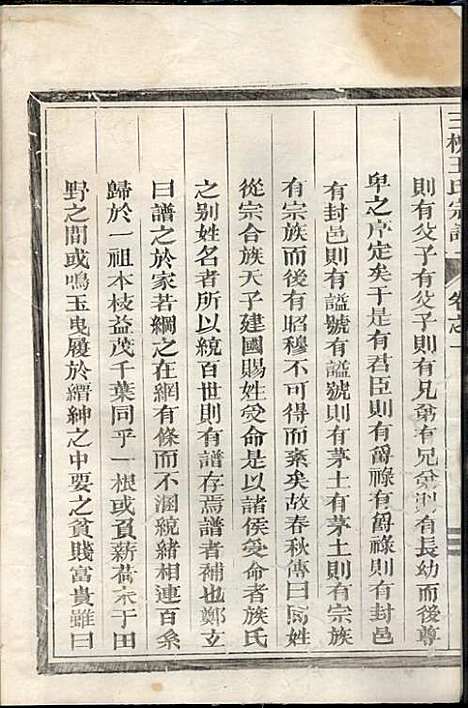 三槐王氏宗譜 卷之一
則有父子有父子則有兄弟有兄弟則有長幼而後尊
卑之序定矣于是有君臣則有爵祿有爵祿則有封邑
有封邑則有謚號有謚號則有茅土有茅土則有宗族
有宗族而後有昭穆不可得而紊矣故春秋傳曰為姓
從宗合族天子建國賜姓受命是以諸侯受命者族氏
之别姓名者所以統百世則有譜存焉譜者補也鄭玄
曰譜之於家若綱之在網有條而不溷統緒相連百系
歸於一祖本枝益茂千葉同乎一根或負薪荷耒于田
野之間或鳴玉曳履於縉紳之中要之貧賤富貴雖曰